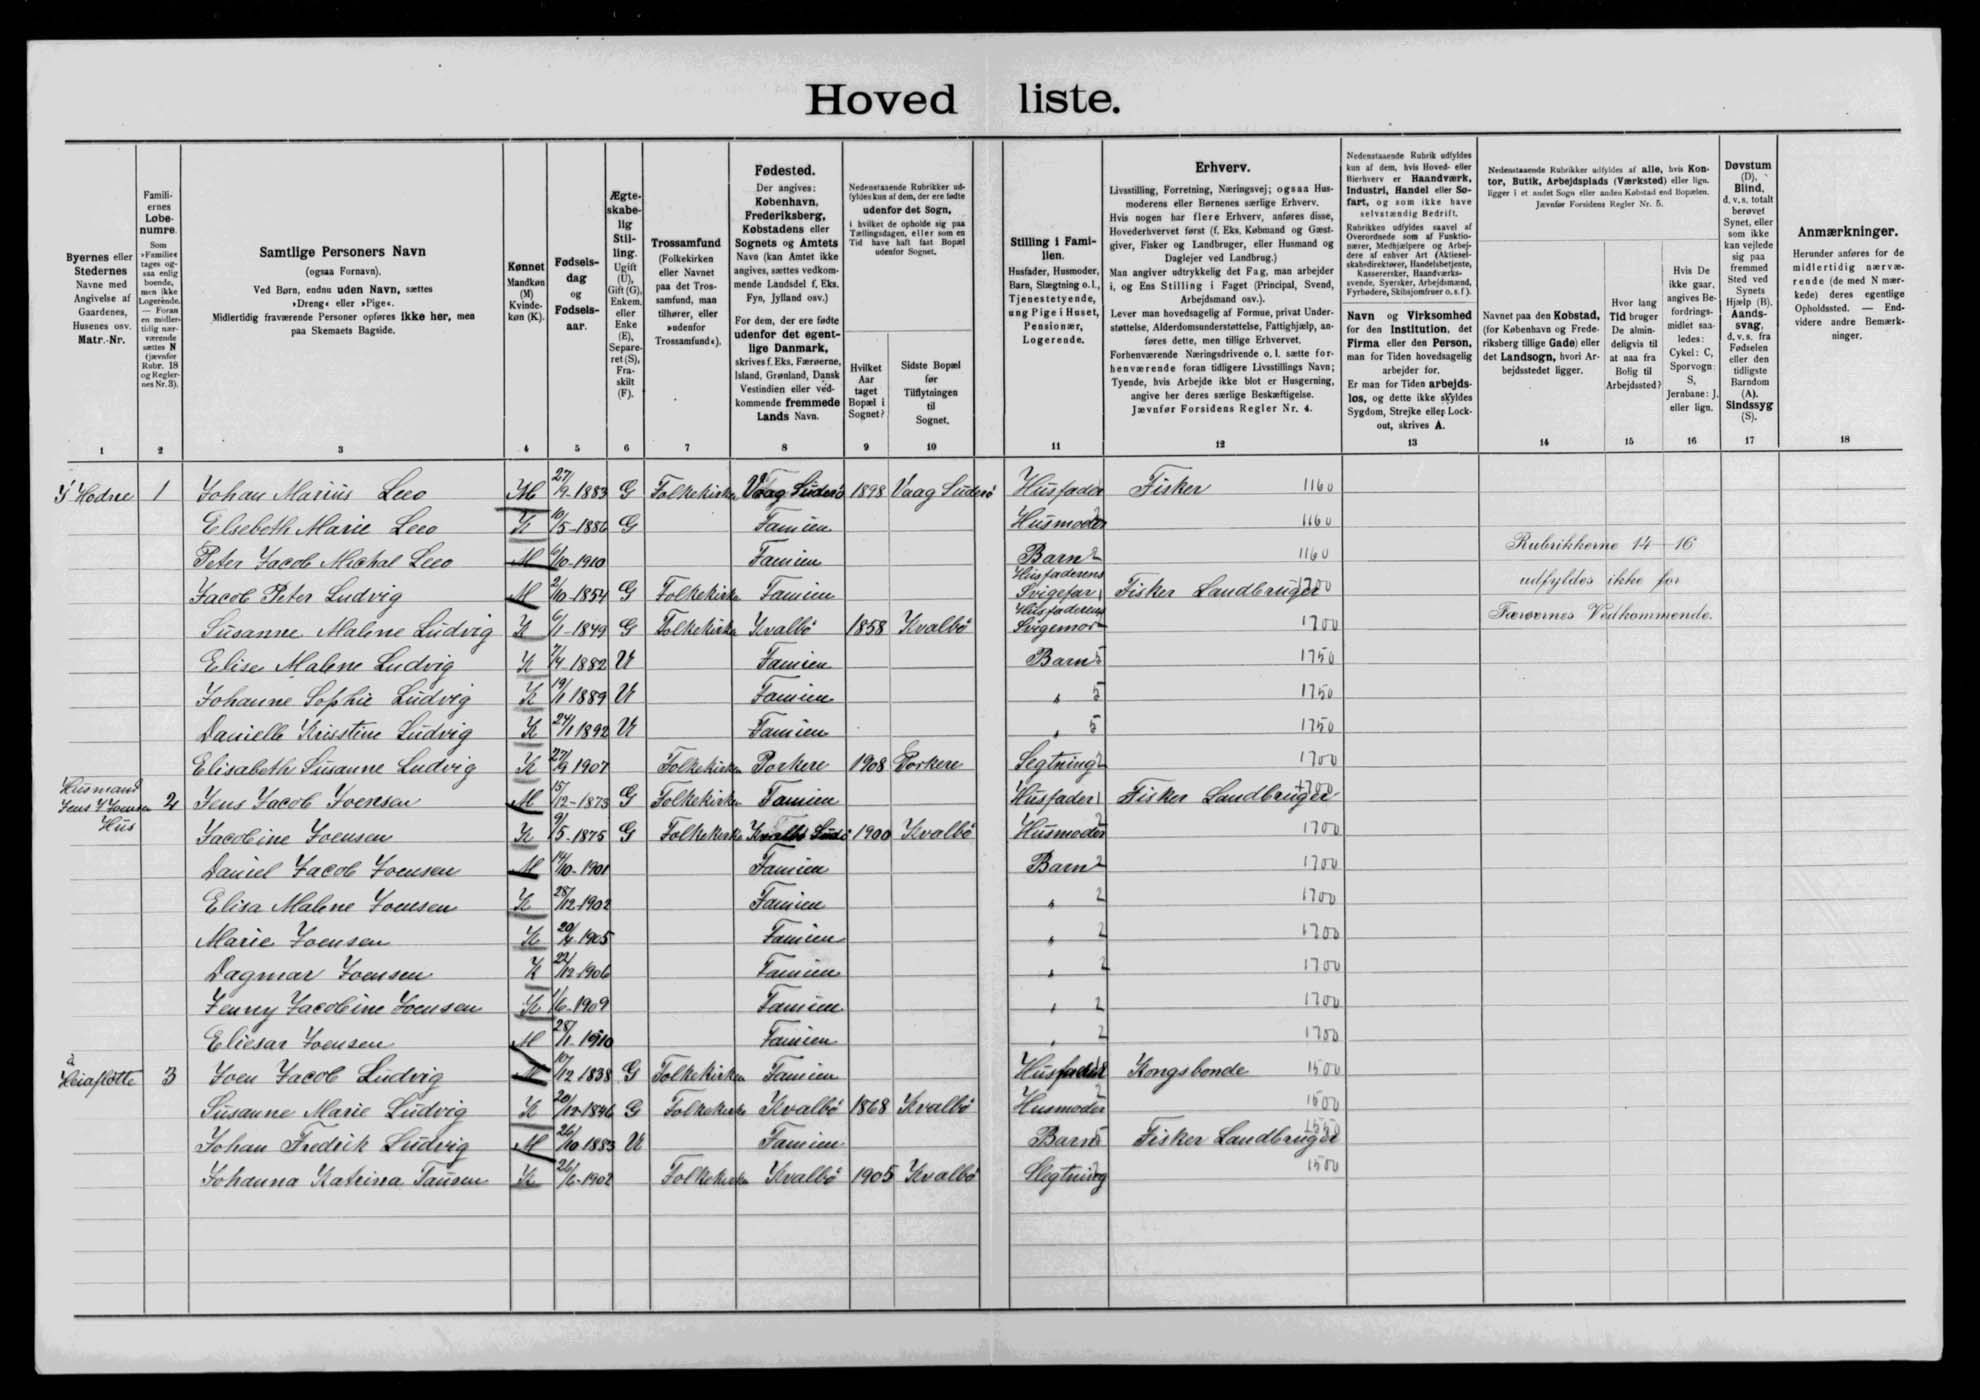 Hoved liste.
Byernes eller
Stedernes
Navne med
Angivelse af
Gaardenes,
Husenes osv.
Matr.-Nr.
1
Famili-
ernes
Løbe-
numre.
Som
»Familie«
tages og-
saa enlig
boende,
men ikke
Logerende.
— Foran
en midler-
tidig nær-
værende
sættes N
(jævnfør
Rubr. 18
og Regler-
nes Nr. 3).
2
Samtlige Personers Navn
(ogsaa Fornavn).
Ved Børn, endnu uden Navn, sættes
»Dreng« eller »Pige«.
Midlertidig fraværende Personer opføres ikke her, men
paa Skemaets Bagside.
3
Kønnet
Mandkøn
(M)
Kvinde-
køn (K).
4
Fødsels-
dag
og
Fødsels-
aar.
5
Ægte-
skabe-
lig
Stil-
ling.
Ugift
(U),
Gift (G),
Enkem.
eller
Enke
(E),
Separe-
ret (S),
Fra-
skilt
(F).
6
Trossamfund
(Folkekirken
eller Navnet
paa det Tros-
samfund, man
tilhører, eller
»udenfor
Trossamfund«).
7
Fødested.
Der angives:
København,
Frederiksberg,
Købstadens eller
Sognets og Amtets
Navn (kan Amtet ikke
angives, sættes vedkom-
mende Landsdel f. Eks.
Fyn, Jylland osv.)
For dem, der ere fødte
udenfor det egent-
lige Danmark,
skrives f. Eks. Færøerne,
Island, Grønland, Dansk
Vestindien eller ved-
kommende fremmede
Lands Navn.
8
Nedenstaaende Rubrikker ud-
fyldes kun af dem, der ere fødte
udenfor det Sogn,
i hvilket de opholde sig paa
Tællingsdagen, eller som en
Tid have haft fast Bopæl
udenfor Sognet.
Hvilket
Aar
taget
Bopæl i
Sognet?
9
Sidste Bopæl
før
Tilflytningen
til
Sognet.
10
Stilling i Fami-
lien.
Husfader, Husmoder,
Barn, Slægtning o. l.,
Tjenestetyende,
ung Pige i Huset,
Pensionær,
Logerende.
11
Erhverv.
Livsstilling, Forretning, Næringsvej; ogsaa Hus-
moderens eller Børnenes særlige Erhverv.
Hvis nogen har flere Erhverv, anføres disse,
Hovederhvervet først (f. Eks. Købmand og Gæst-
giver, Fisker og Landbruger, eller Husmand og
Daglejer ved Landbrug.)
Man angiver udtrykkelig det Fag, man arbejder
i, og Ens Stilling i Faget (Principal, Svend,
Arbejdsmand osv.).
Lever man hovedsagelig af Formue, privat Under-
støttelse, Alderdomsunderstøttelse, Fattighjælp, an-
føres dette, men tillige Erhvervet.
Forhenværende Næringsdrivende o. l. sætte for-
henværende foran tidligere Livsstillings Navn;
Tyende, hvis Arbejde ikke blot er Husgerning,
angive her deres særlige Beskæftigelse.
Jævnfør Forsidens Regler Nr. 4.
12
Nedenstaaende Rubrik udfyldes
kun af dem, hvis Hoved- eller
Bierhverv er Haandværk,
Industri, Handel eller Sø-
fart, og som ikke have
selvstændig Bedrift.
Rubrikken udfyldes saavel af
Overordnede som af Funktio-
nærer, Medhjælpere og Arbej-
dere af enhver Art (Aktiesel-
skabsdirektører, Handelsbetjente,
Kasserersker, Haandværks-
svende, Syersker, Arbejdsmænd,
Fyrbødere, Skibsjomfruer o. s. f.).
Navn og Virksomhed
for den Institution, det
Firma eller den Person,
man for Tiden hovedsagelig
arbejder for.
Er man for Tiden arbejds-
løs, og dette ikke skyldes
Sygdom, Strejke eller Lock-
out, skrives A.
13
Nedenstaaende Rubrikker udfyldes af alle, hvis Kon-
tor, Butik, Arbejdsplads (Værksted) eller lign.
ligger i et andet Sogn eller anden Købstad end Bopælen.
Jævnfør Forsidens Regler Nr. 5.
Navnet paa den Købstad,
(for København og Frede-
riksberg tillige Gade) eller
det Landsogn, hvori Ar-
bejdsstedet ligger.
14
Hvor lang
Tid bruger
De almin-
deligvis til
at naa fra
Bolig til
Arbejdssted?
15
Hvis De
ikke gaar,
angives Be-
fordrings-
midlet saa-
ledes:
Cykel: C,
Sporvogn:
S,
Jernbane: J,
eller lign.
16
Døvstum
(D),
Blind,
d. v. s. totalt
berøvet
Synet, eller
som ikke
kan vejlede
sig paa
fremmed
Sted ved
Synets
Hjælp (B).
Aands-
svag,
d. v. s. fra
Fødselen
eller den
tidligste
Barndom
(A).
Sindssyg
(S).
17
Anmærkninger.
Herunder anføres for de
midlertidig nærvæ-
rende (de med N mær-
kede) deres egentlige
Opholdssted. — End-
videre andre Bemærk-
ninger.
18
Í Hødne 1 Johan Marius Leeo M 27/9-1883 G Folkekirke Vaag Suderö 1898 Vaag Suderö Husfader Fisker 1160
Elsebeth Marie Leeo K 10/5-1886 G Famien Husmoder 2 1160
Peter Jacob Michal Leeo M 6/10-1910 Famien Barn 2 1160
Rubrikkerne 14 - 16
Jacob Peter Ludvig M 2/10-1854 G Folkekirke Famien Husfaderens Svigefar 1 Fisker Landbruger 1700
udfyldes ikke for
Susanne Malene Ludvig K 6/1-1849 G Folkekirke Kvalbö 1858 Kvalbö Husfaderens Svigemor 1700
Færøernes Vedkommende.
Elise Malene Ludvig K 7/4-1882 U Famien Barn 5 1750
Johanne Sophie Ludvig K 19/1 1889 U Famien " 5 1750
Danielle Kristine Ludvig K 24/1 1892 U Famien " 5 1750
Elisabeth Susanne Ludvig K 27/9 1907 Folkekirken Porkere 1908 Porkere Segtning 2 1700
Husmand Jens J Joensen Hus 2 Jens Jacob Joensen M 15/12-1873 G Folkekirken Famien Husfader 1 Fisker Landbruger 1700
Jacobine Joensen K 9/5-1875 G Folkekirke Kvalbö Sudö 1900 Kvalbö Husmoder 2 1700
Daniel Jacob Joensen M 14/10-1901 Famien Barn 2 1700
Elisa Malene Joensen K 28/12-1902 Famien " 2 1700
Marie Joensen K 20/4-1905 Famien " 2 1700
Dagmar Joensen K 22/12-1906 Famien " 2 1700
Jenny Jacobine Joensen K 1/6-1909 Famien " 2 1700
Eliesar Joensen M 28/1-1910 Famien " 2 1700
á Heiaflötte 3 Joen Jacob Ludvig M 10/12 1838 G Folkekirken Famien Husfader Kongsbonde 1500
Susanne Marie Ludvig K 20/12-1846 G Folkekirke Kvalbö 1868 Kvalbö Husmoder 2 1500
Johan Fredrik Ludvig M 26/10 1883 U Famien Barn 5 Fisker Landbruger 1550
Johanna Katrina Tausen K 26/6-1902 Folkekirke Kvalbö 1905 Kvalbö Slegtning 1500